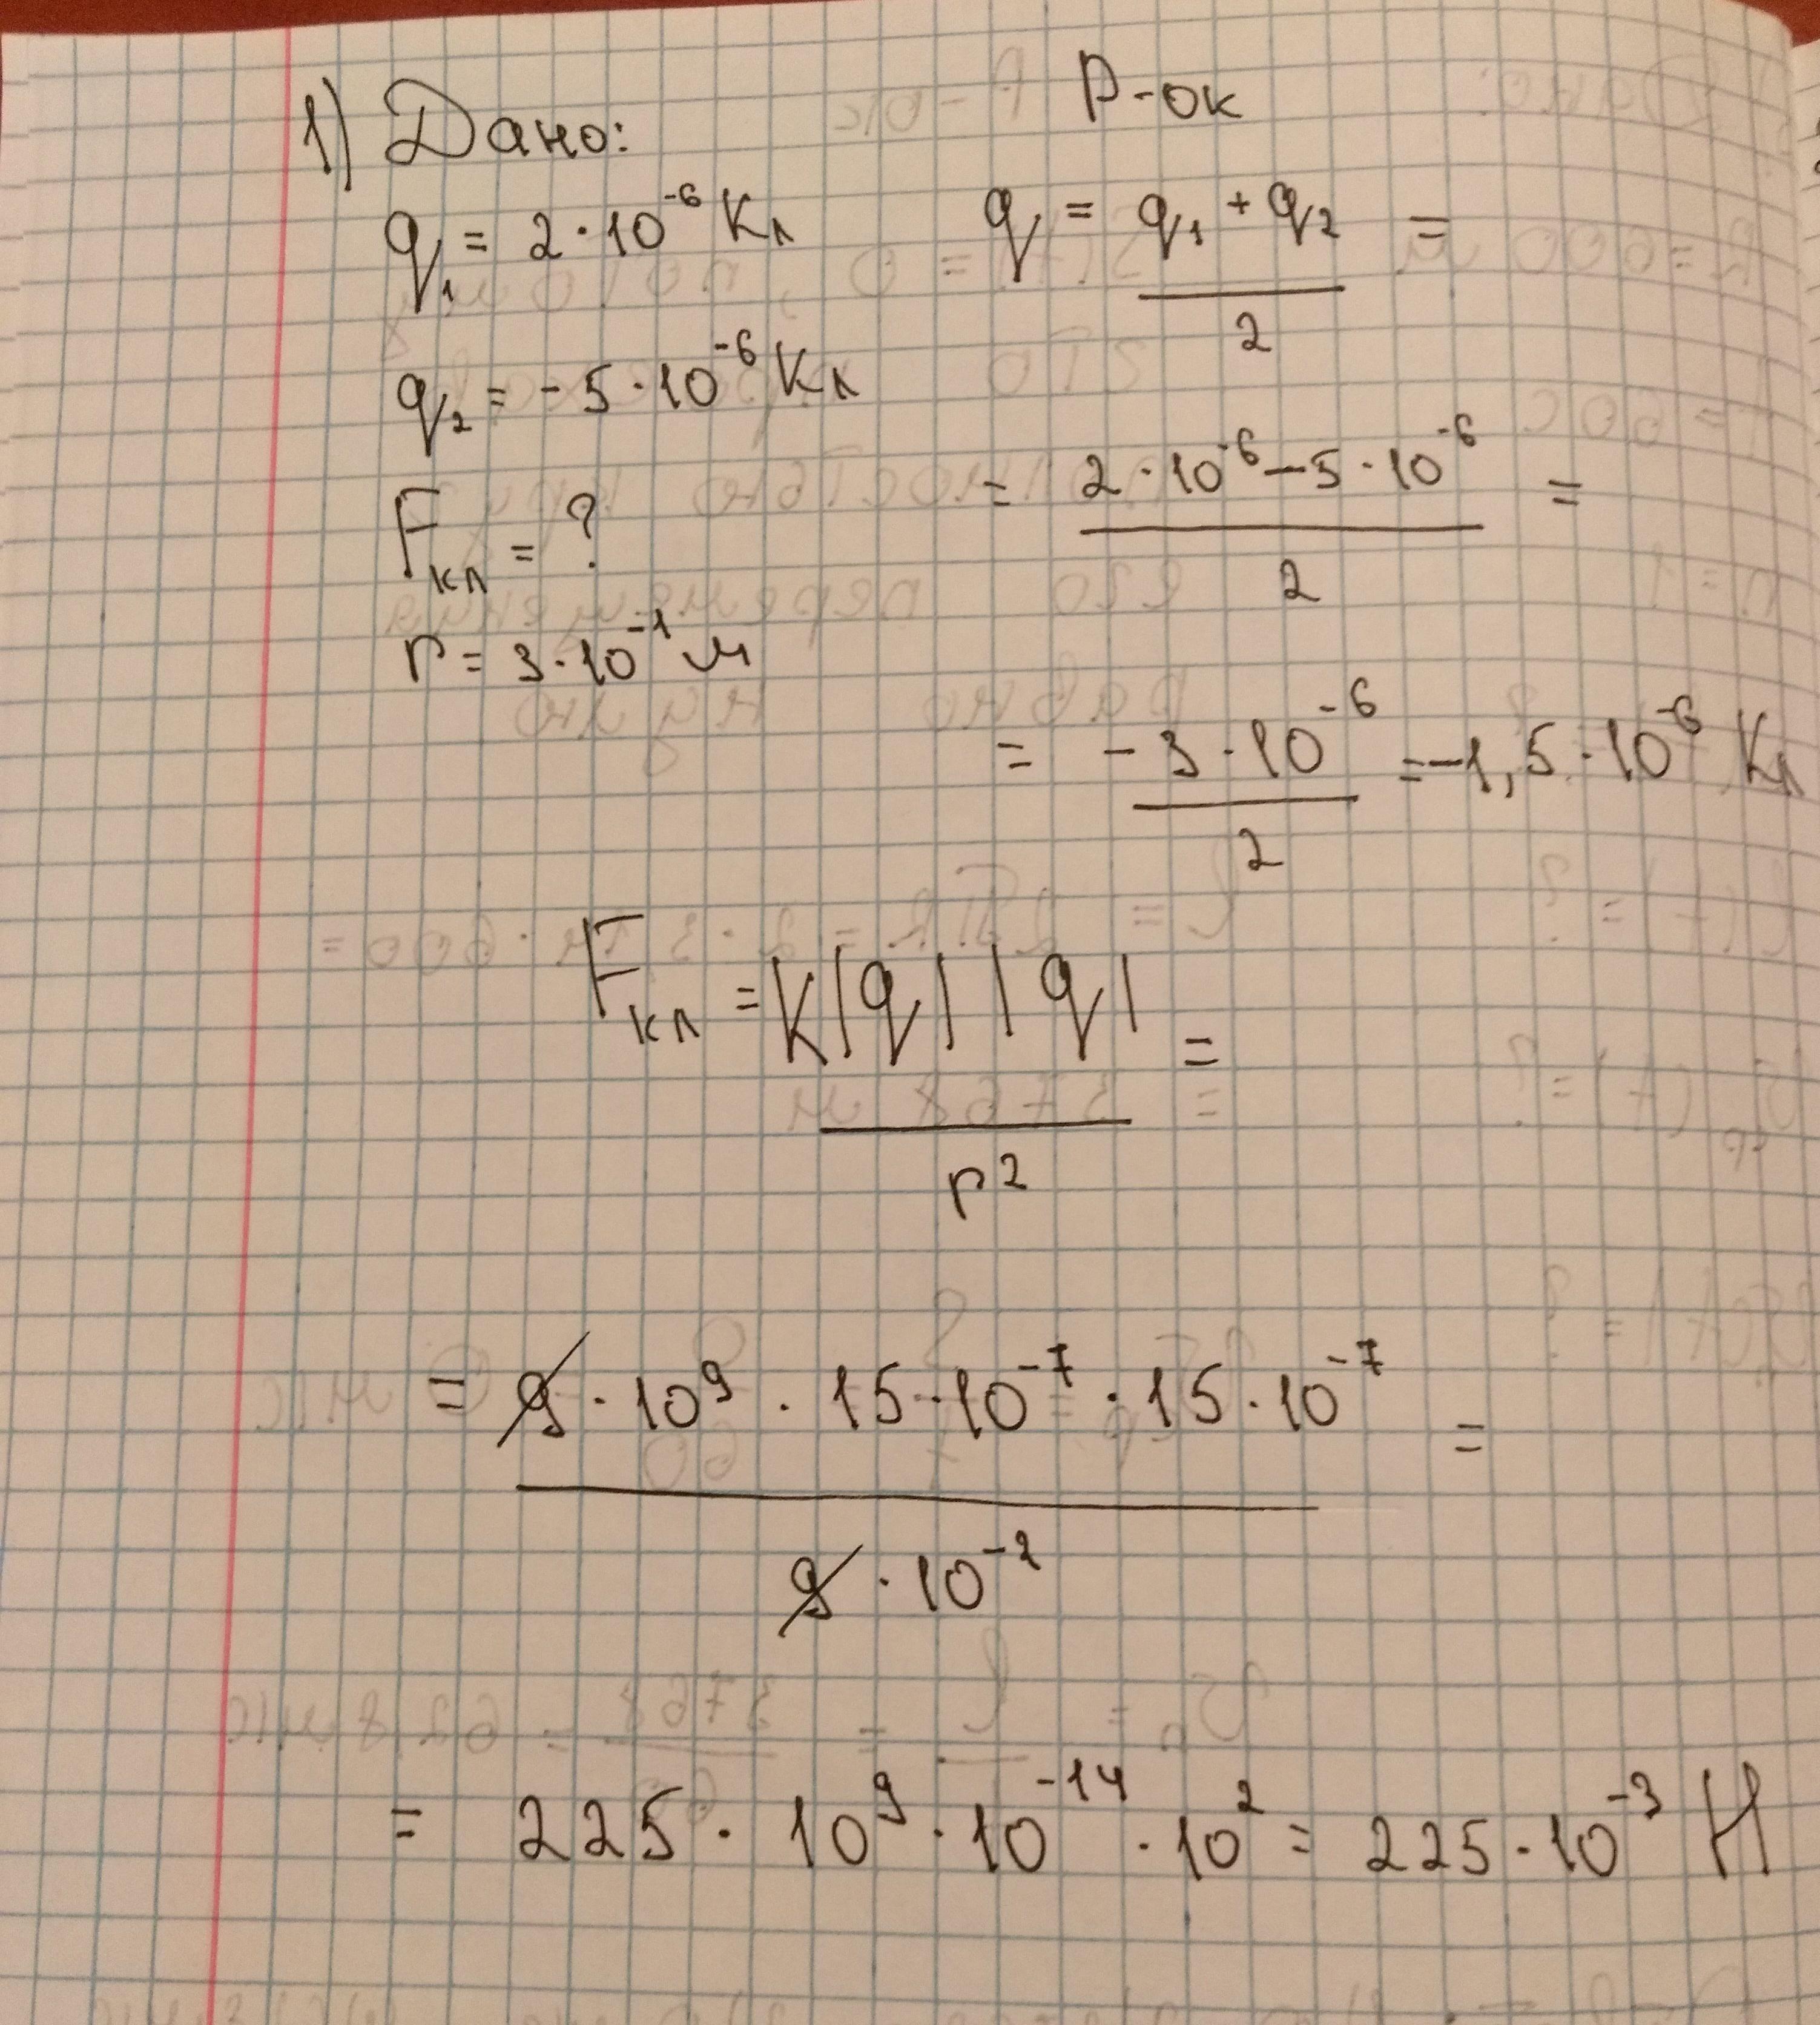 1) Дано:
q₁ = 2·10⁻⁶ Кл
q₂ = -5·10⁻⁶ Кл
Fкл = ?
r = 3·10⁻¹ м
Р-ок
q = (q₁ + q₂)/2 =
= (2·10⁻⁶ - 5·10⁻⁶)/2 =
= (-3·10⁻⁶)/2 = -1,5·10⁻⁶ Кл
Fкл = k|q||q|/r² =
= (9·10⁹·15·10⁻⁷·15·10⁻⁷)/(9·10⁻²) =
= 225·10⁹·10⁻¹⁴·10² = 225·10⁻³ Н